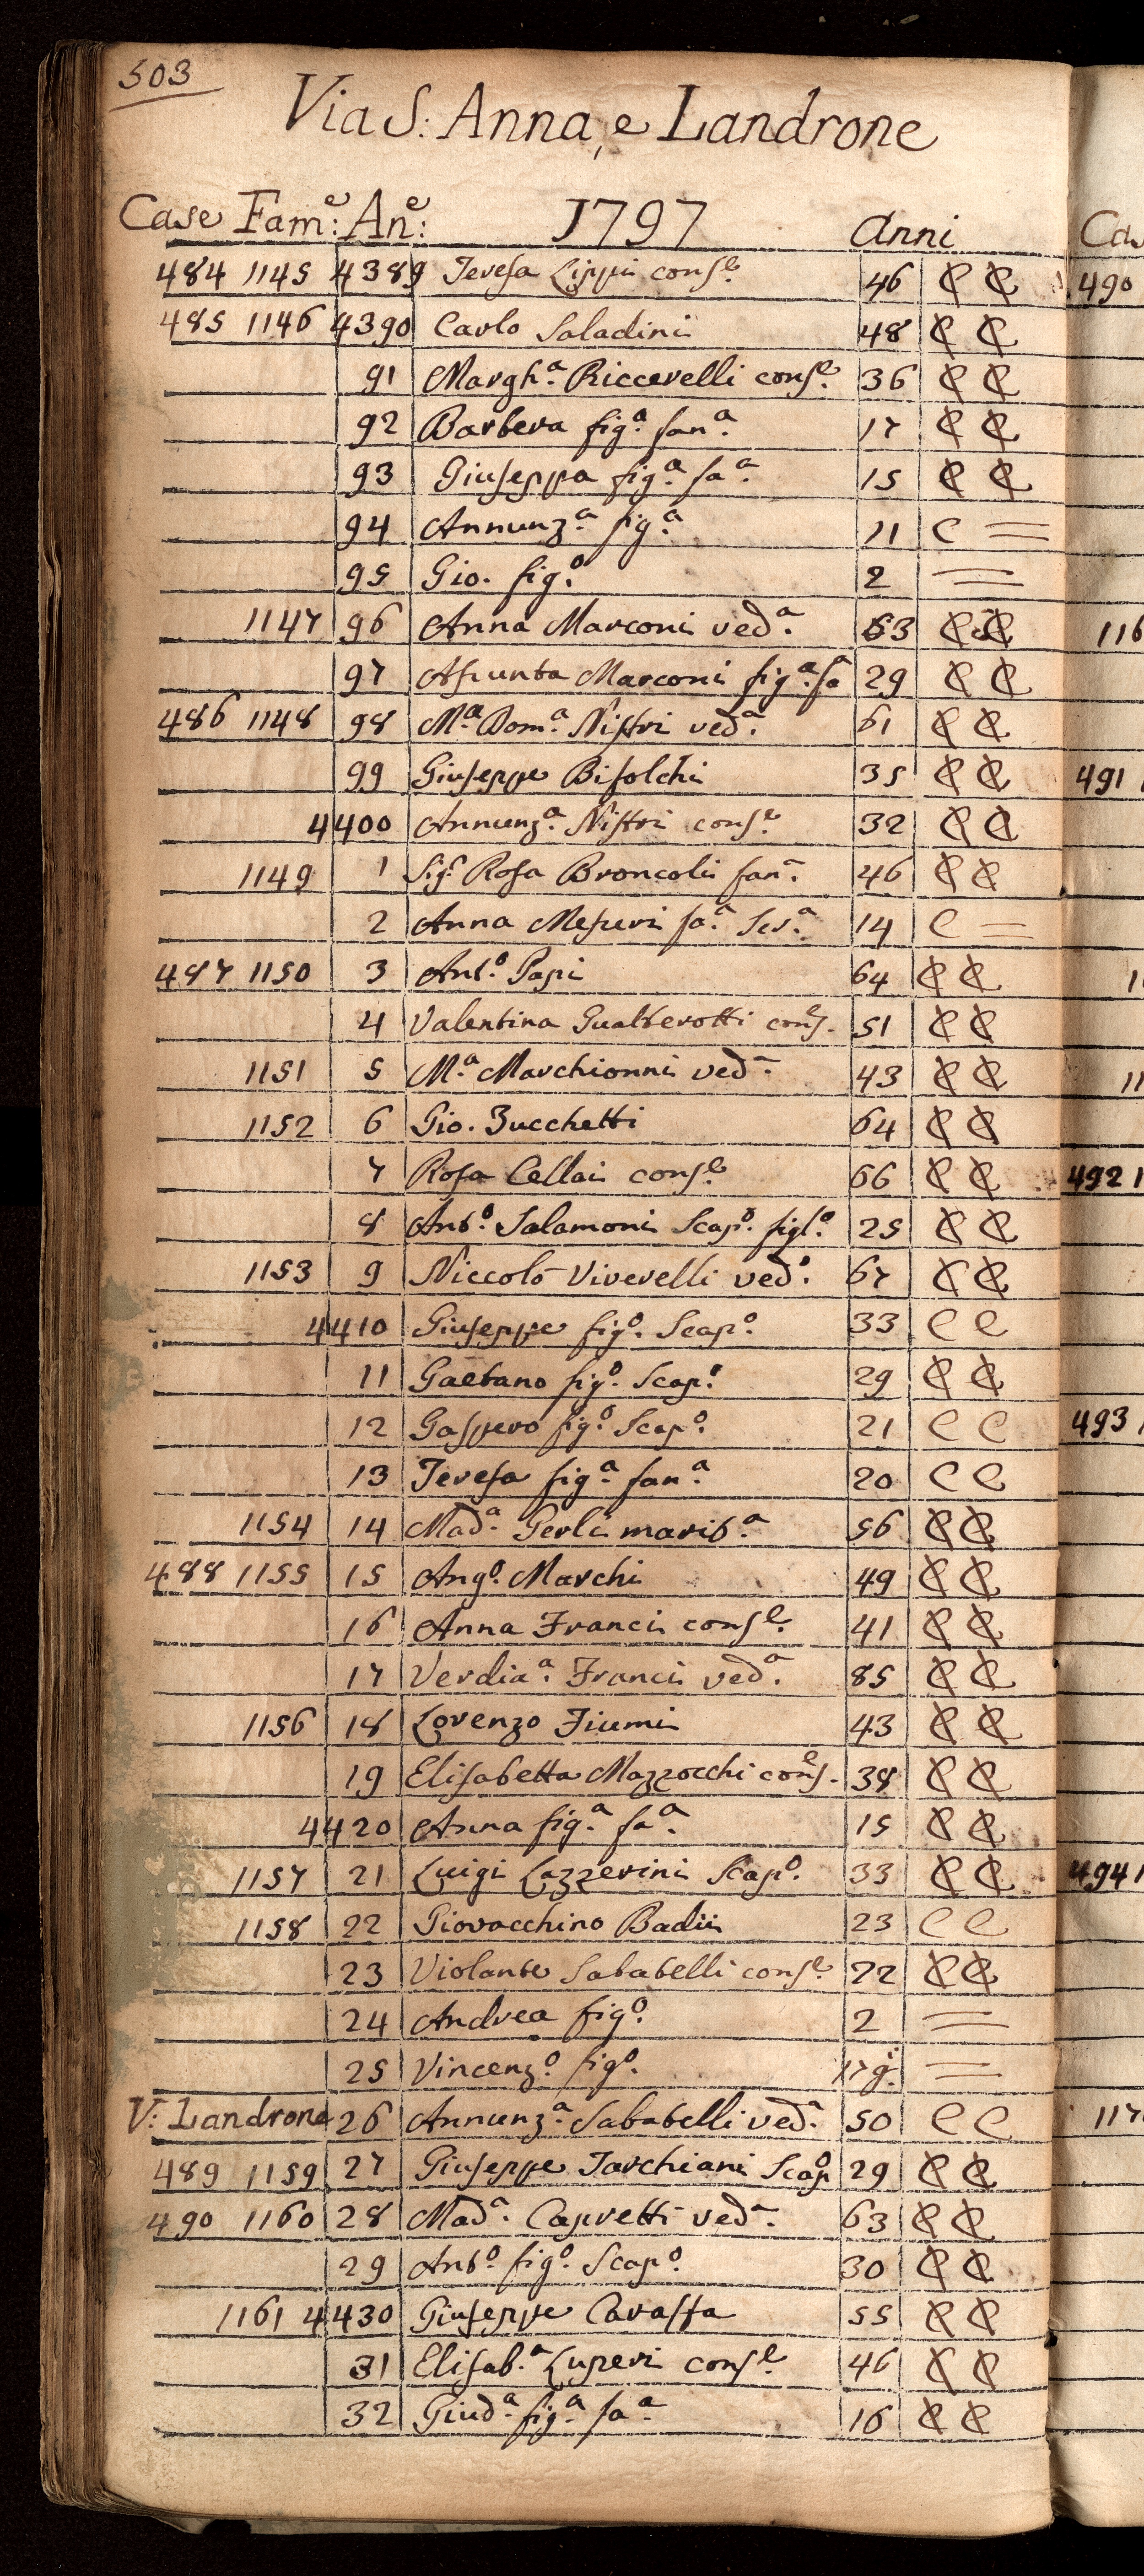 503
Via S: Anna, e Landrone
Case Fam.e: An.e: 1797 Anni
484 1145 4389 Teresa Lippi cons.e 46 C C
485 1146 4390 Carlo Saladini 48 C C
91 Margh.a Riccerelli cons.e 36 C C
92 Barbera fig.a fan.a 17 C C
93 Giuseppa fig.a fa.a 15 C C
94 Annunz.a fig.a 11 C =
95 Gio. fig.o 2 =
1147 96 Anna Marconi ved.a 63 C C
97 Asunta Marconi fig.a fa 29 C C
486 1148 98 M.a Dom.a Nistri ved.a 61 C C
99 Giuseppe Bifolchi 35 C C
4400 Annunz.a Nistri cons.e 32 C C
1149 1 Sig.a Rosa Broncoli fan.a 46 C C
2 Anna Mesperi fa.a Ser.a 14 C =
487 1150 3 Ant.o Papi 64 C C
4 Valentina Gualberotti cons.e 51 C C
1151 5 M.a Marchionni ved.a 43 C C
1152 6 Gio. Zucchetti 64 C C
7 Rosa Cellai cons.e 66 C C
8 Ant.o Salamoni Scap.o figl.o 25 C C
1153 9 Niccolò Viverelli ved.o 67 C C
4410 Giuseppe fig.o Scap.o 33 C C
11 Gaetano fig.o Scap.o 29 C C
12 Gaspero fig.o Scap.o 21 C C
13 Teresa fig.a fan.a 20 C C
1154 14 Mad.a Gerli marit.a 56 C C
488 1155 15 Ang.o Marchi 49 C C
16 Anna Franci cons.e 41 C C
17 Verdia.a Franci ved.a 85 C C
1156 18 Lorenzo Fiumi 43 C C
19 Elisabetta Mazzocchi cons.e 38 C C
4420 Anna fig.a fa.a 15 C C
1157 21 Luigi Lazzerini Scap.o 33 C C
1158 22 Giovacchino Badii 23 C C
23 Violante Sabatelli cons.e 22 C C
24 Andrea fig.o 2 =
25 Vincenz.o fig.o 17 g.i =
V: Landrone 26 Annunz.a Sabatelli ved.a 50 C C
489 1159 27 Giuseppe Tarchiani Scap.o 29 C C
490 1160 28 Mad.a Capretti ved.a 63 C C
29 Ant.o fig.o Scap.o 30 C C
1161 4430 Giuseppe Caraffa 55 C C
31 Elisab.a Luperi cons.e 46 C C
32 Giud.a fig.a fa.a 16 C C
490
116
491
492 1
493
494 1
117